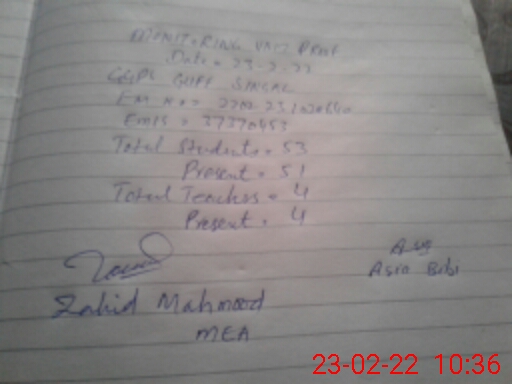 MONITORING VISIT PROOF
Date = 23-2-22
GGPS GUFF SINGAL
EMIS = 37370453
Total Students = 53
Present = 51
Total Teachers = 4
Present = 4
Asia Bibi
Zahid Mahmood
MEA
23-02-22 10:36